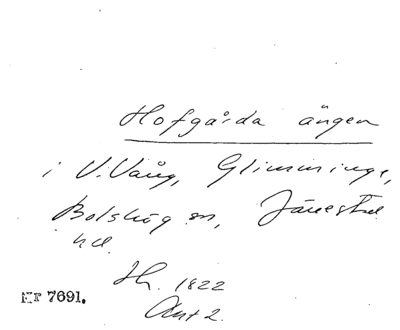 Hofgårda ängen
i V. Vång, Glimminge,
Bolshög sn, Järrestad
hd.
Sk. 1822
Akt 2.
Nr 7691.